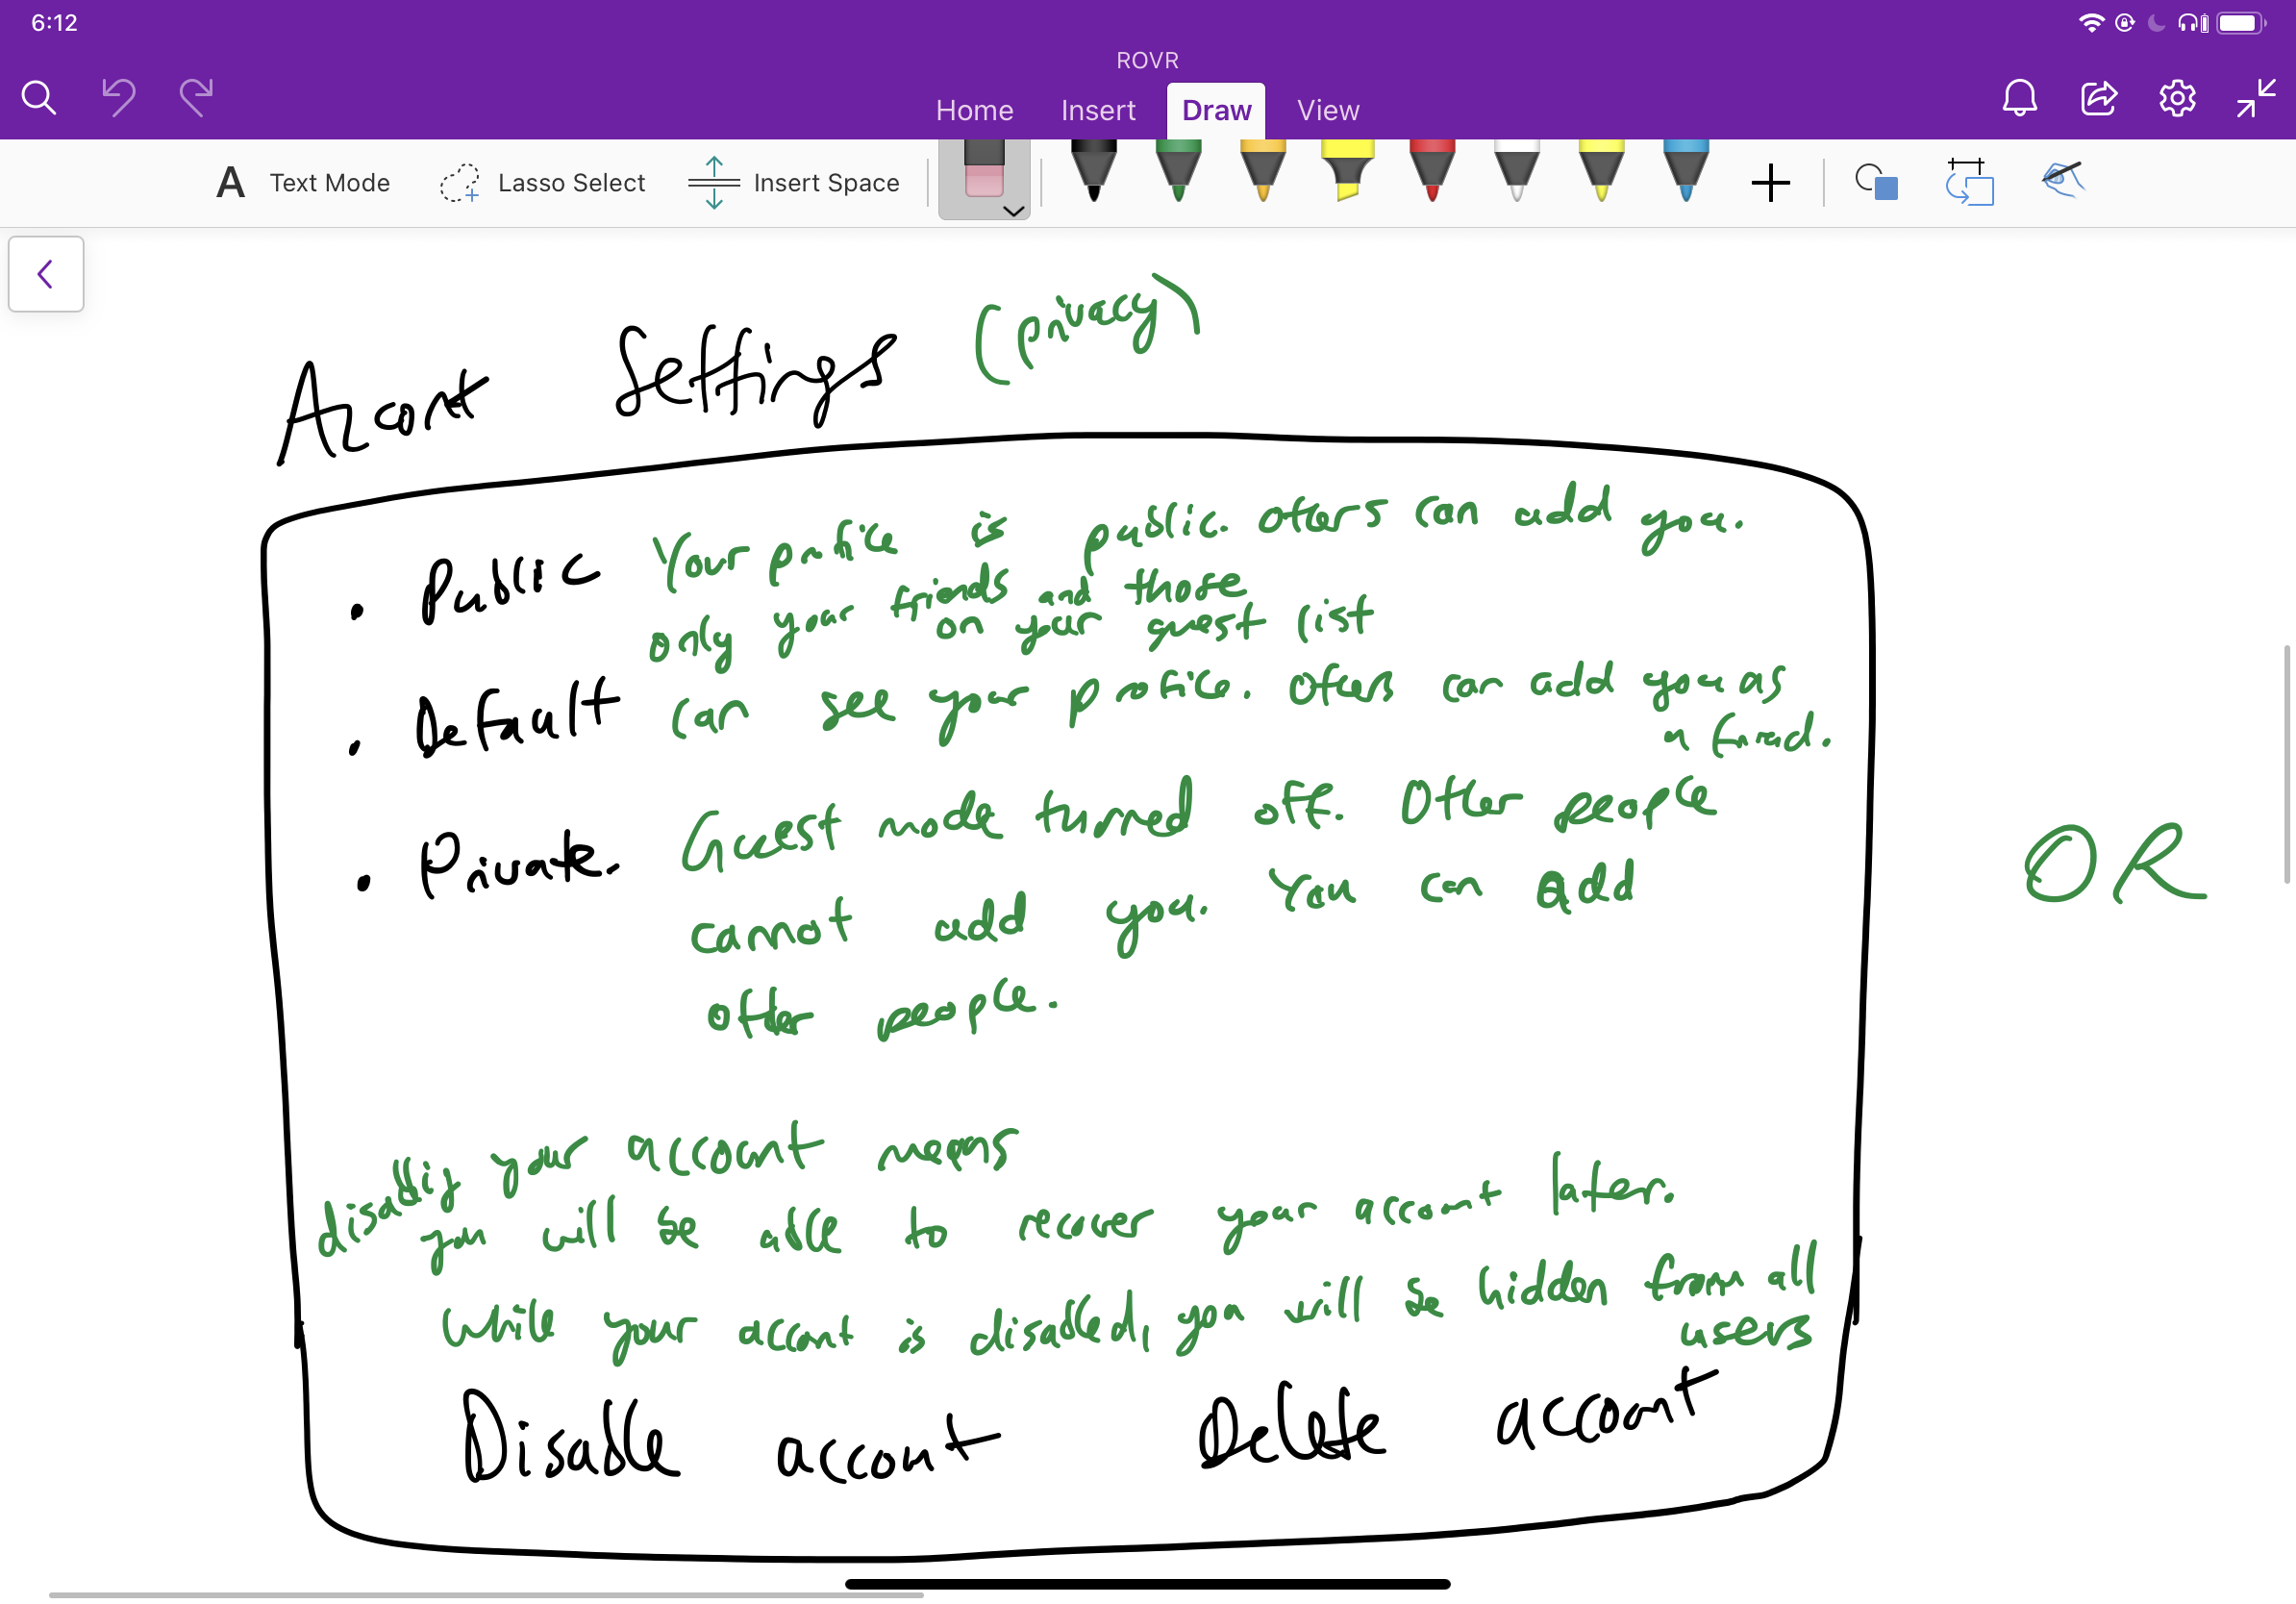 6:12
ROVR
Home Insert Draw View
Text Mode Lasso Select Insert Space
Account Settings (privacy)
Your profile is public. Others can add you.
• Public
only your friends and those
on your guest list
• Default can see your profile. Others can add you as
a friend.
• Private. Guest mode turned off. Other people
cannot add you. You can add
other people.
OR
disabling your account means
you will be able to recover your account later.
While your account is disabled, you will be hidden from all
users
Disable account Delete account